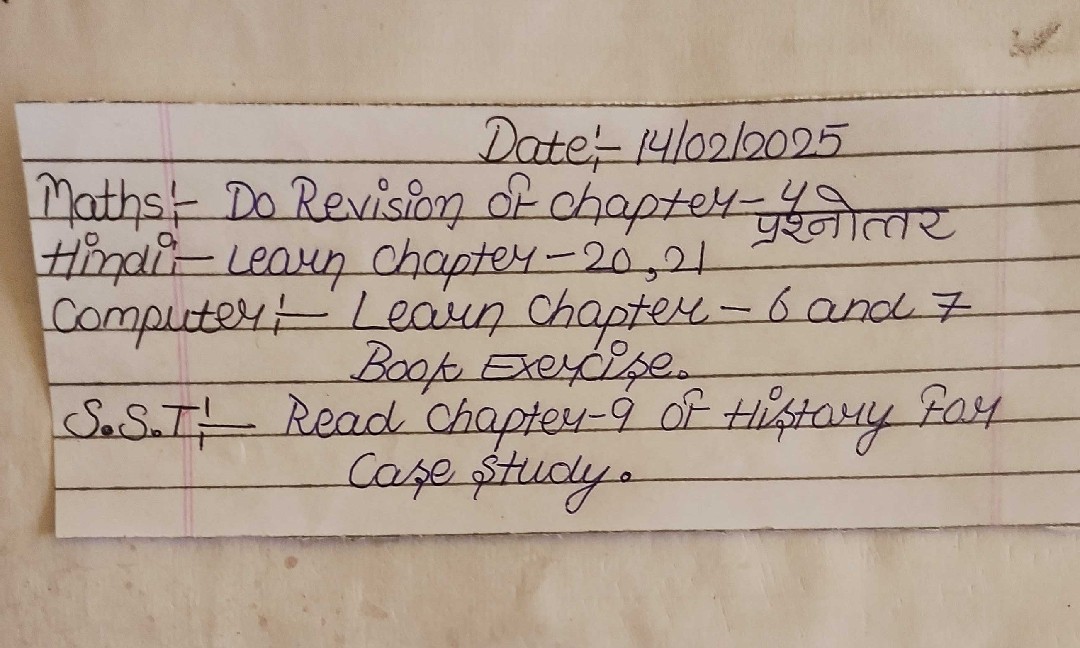 Date:- 14/02/2025
Maths:- Do Revision of chapter-4
Hindi:- Learn Chapter-20,21 प्रश्नोत्तर
Computer:- Learn Chapter-6 and 7
Book Exercise.
S.S.T:- Read Chapter-9 of History For
Case Study.